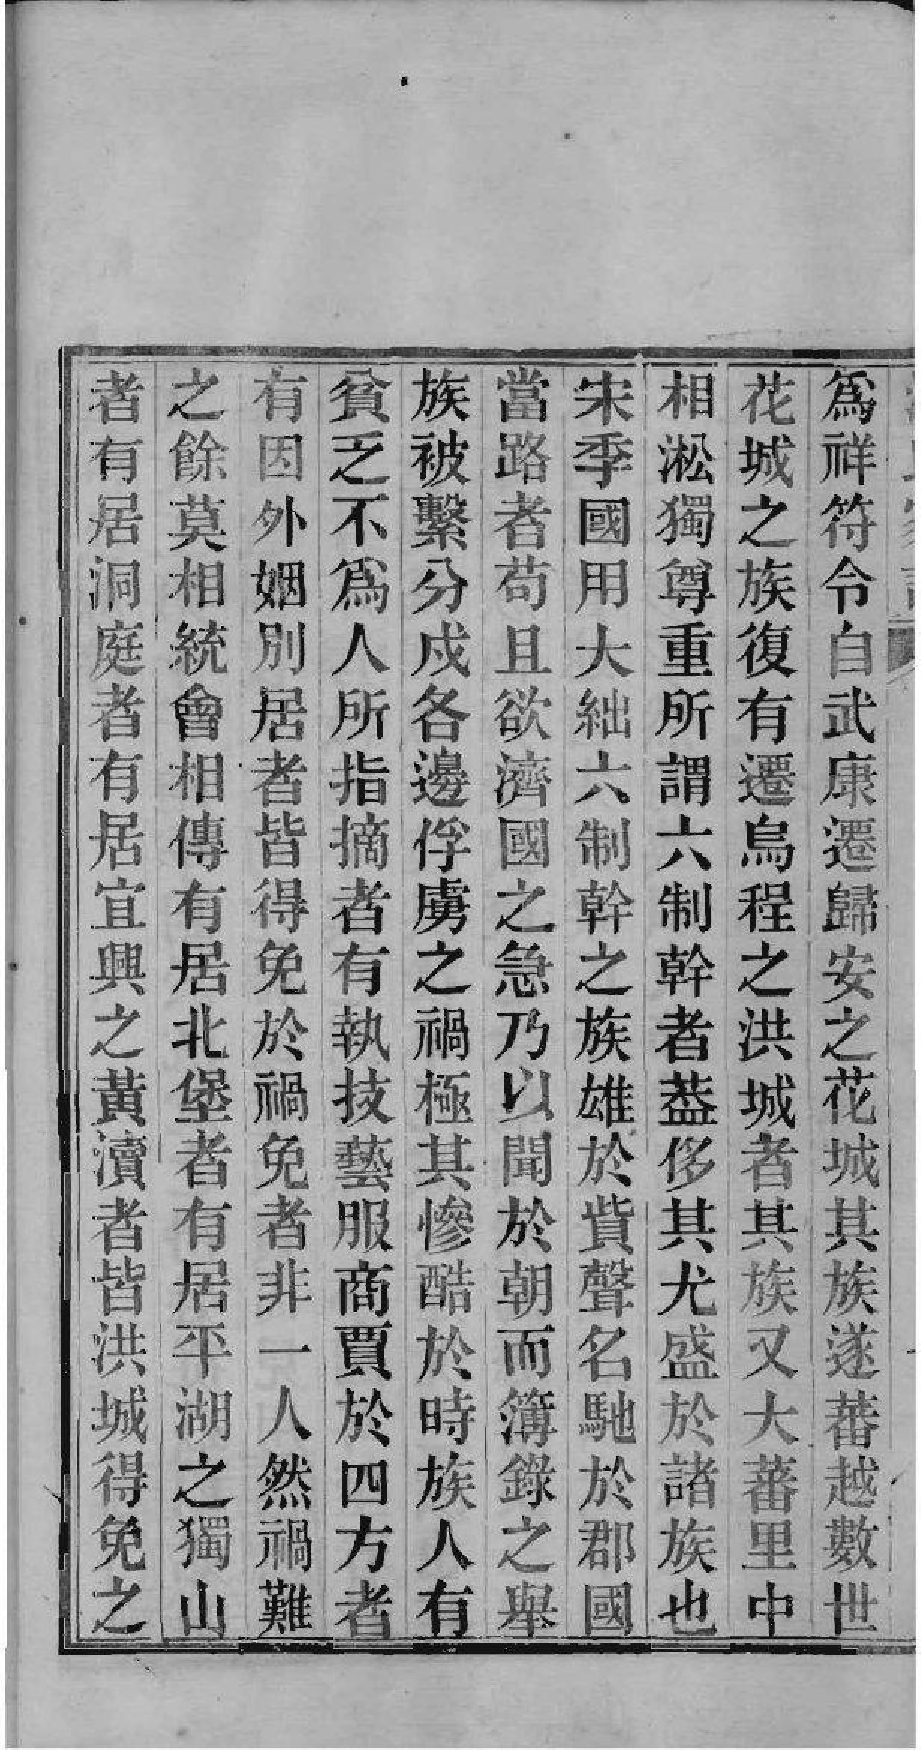 爲祥符令自武康遷歸安之花城其族遂蕃越數世
花城之族復有遷烏程之洪城者其族又大蕃里中
相淞獨尊重所謂六制幹者葢侈其尤盛於諸族也
宋季國用大絀六制幹之族雄於貲聲名馳於郡國
當路者苟且欲濟國之急乃以聞於朝而簿錄之舉
族被繫分戍各邊俘虜之禍極其慘酷於時族人有
貧乏不爲人所指摘者有執技藝服商賈於四方者
有因外姻別居者皆得免於禍免者非一人然禍難
之餘莫相統會相傳有居北堡者有居平湖之獨山
者有居洞庭者有居宜興之黃瀆者皆洪城得免之